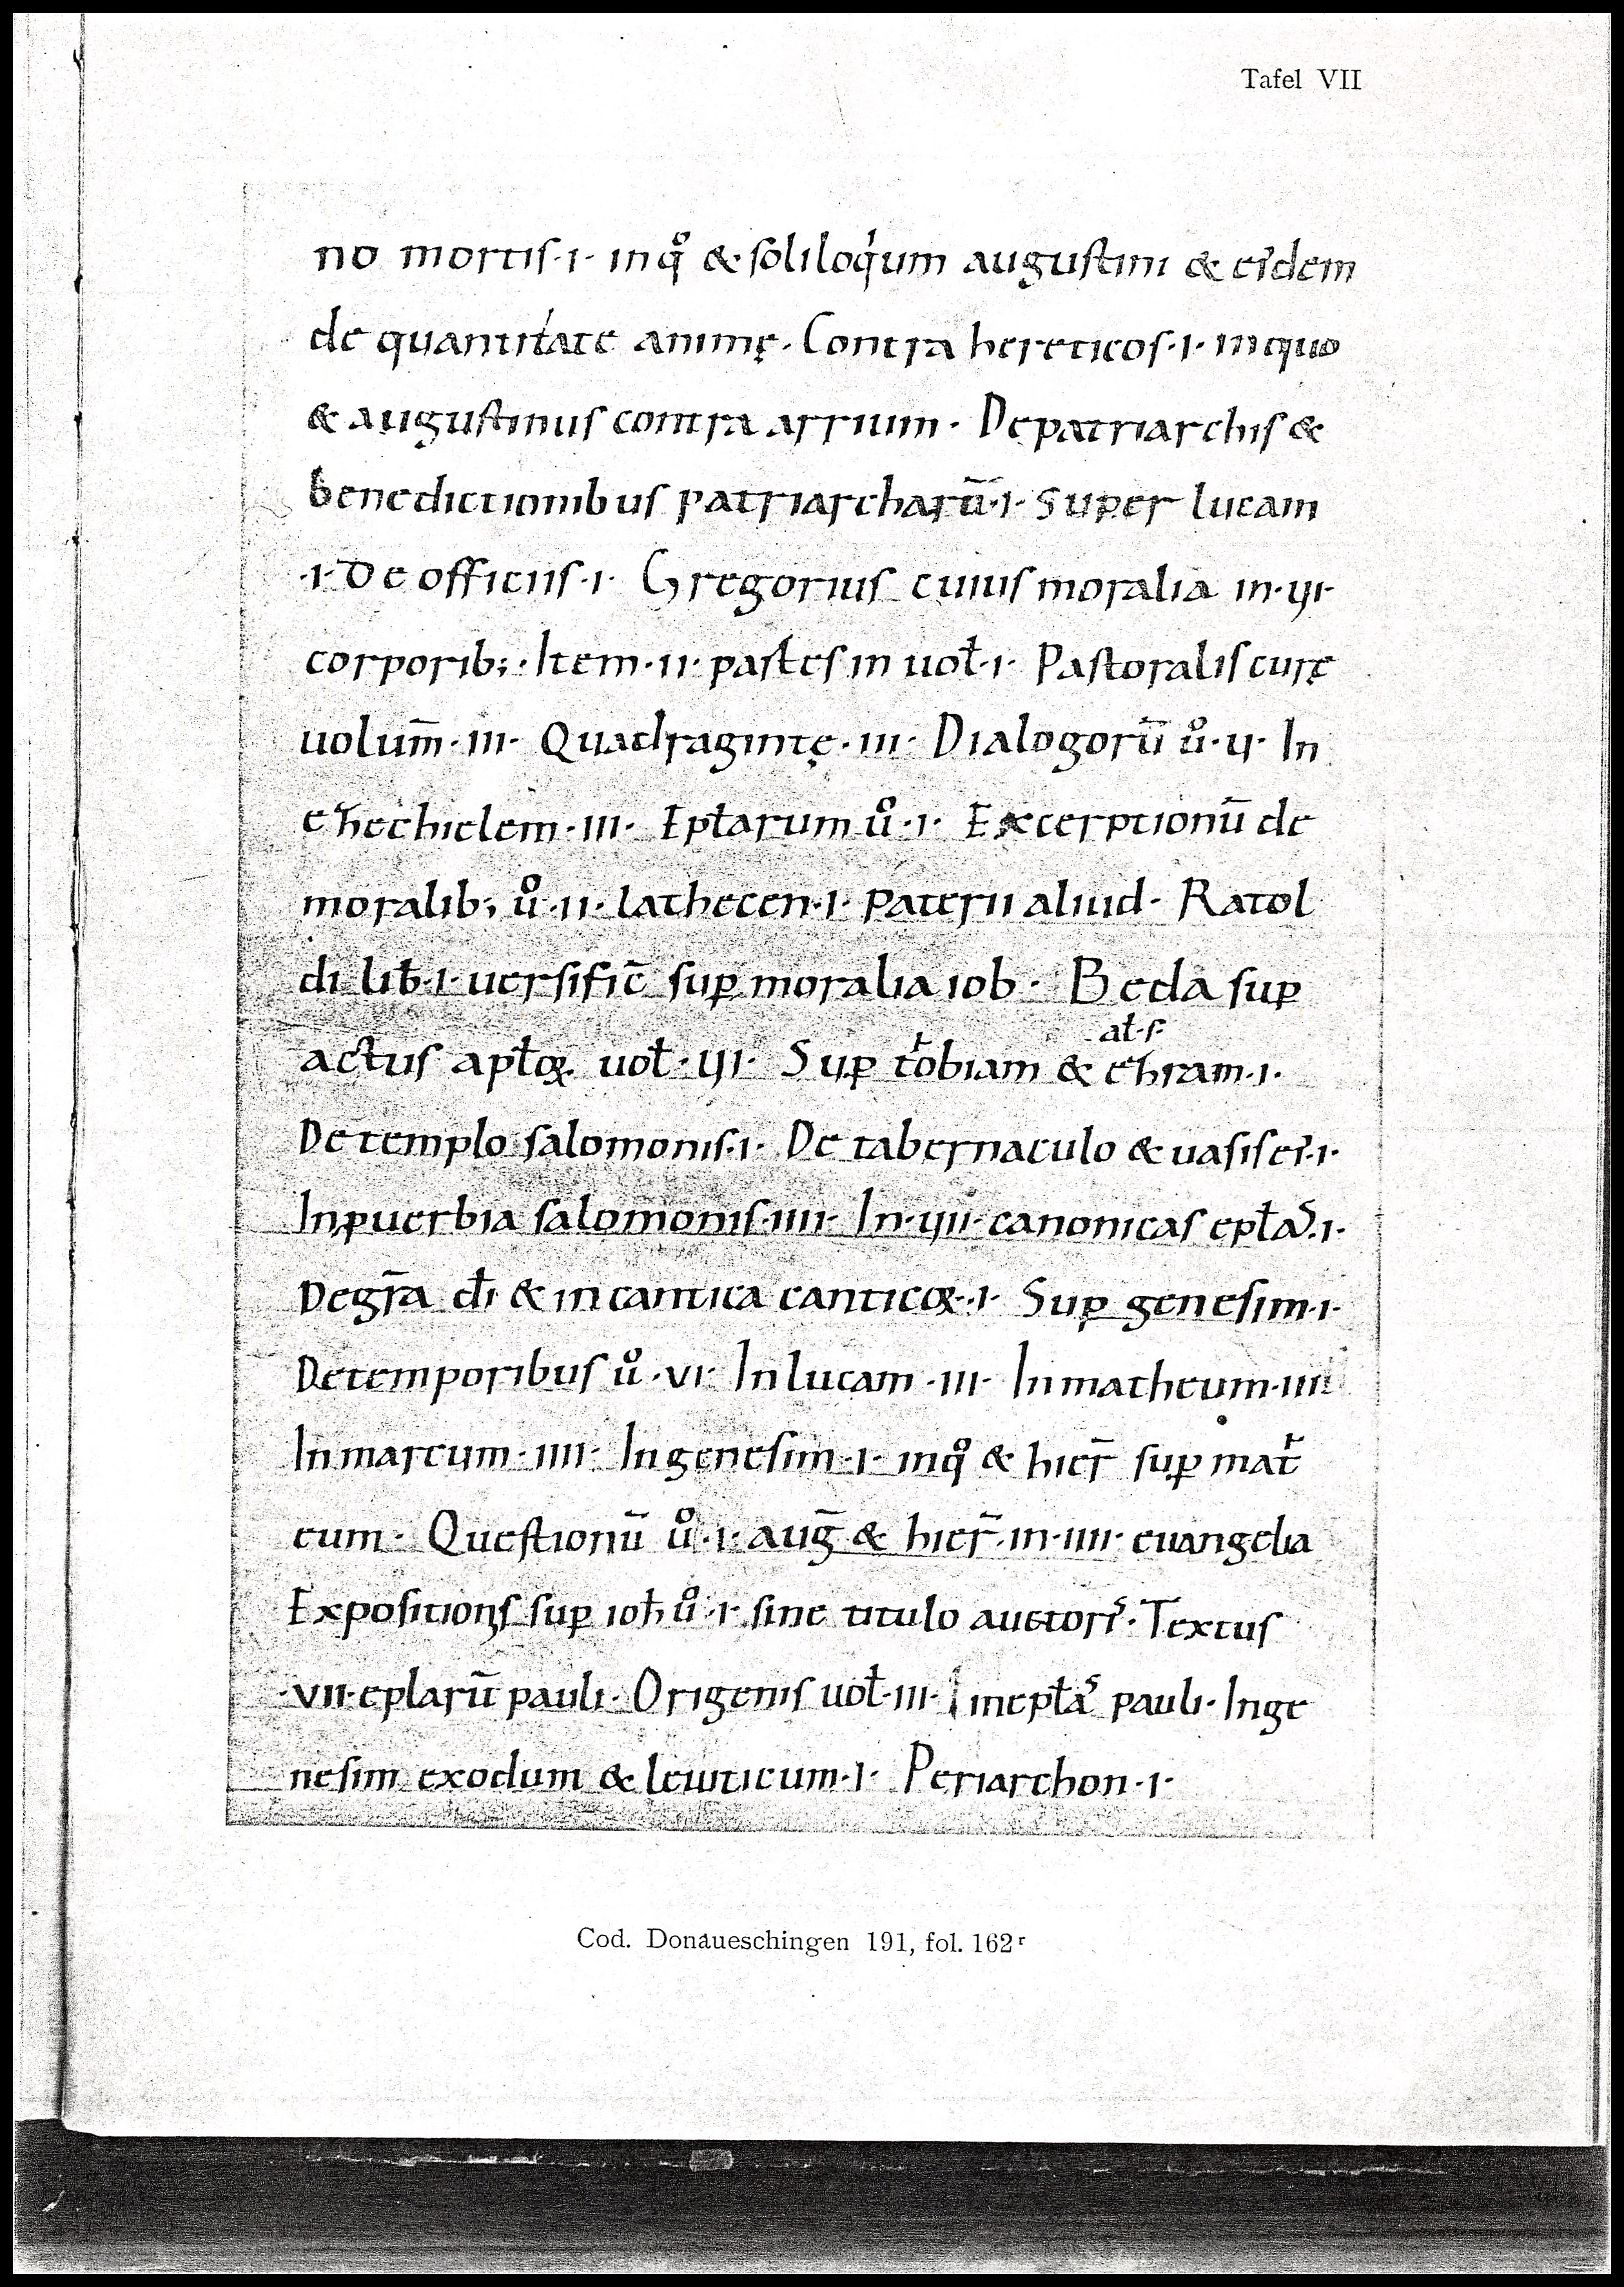 Tafel VII
no mortis·i· inqͦ & soliloqͥum augustini & eiꝰdem
de quantitate animę. Contra hereticos·i· inquo
& augustinus contra arrium. Depatriarchis &
benedictionibus patriarcharū·i· Super lucam
·i· De officiis·i· Gregorius cuius moralia in·iii·
corporib;· Item·ii· partes in uoł·i· Pastoralis curę
uolum̄·iii· Quadragintę·iii· Dialogorū uͦ·ii· In
ezechielem·iii· Epłarum uͦ·i· Excerptionū de
moralib; uͦ·ii· lathecen·i· Paterii aliud· Ratol
di lib̄·i· uersific̄ suꝑ moralia iob· Beda suꝑ
actus apłoꝝ uoł·iii· Suꝑ tobiam & ezram·i·
ał·s·
De templo salomonis·i· De tabernaculo & uasis eiꝰ·i·
Inꝓuerbia salomonis·iiii· In·vii·canonicas epłas·i·
Degr̄a dī & incantica canticoꝝ·i· Suꝑ genesim·i·
Detemporibus uͦ·vi· Inlucam·iii· Inmatheum·iiii·
Inmarcum·iiii· Ingenesim·i· inqͦ & hier̄ suꝑ mat
eum· Questionū uͦ·i· auḡ & hier̄·in·iiii·euangelia
Expositionis suꝑ ioh̄ uͦ·i· sine titulo auctoris· Textus
·VII·eplarū pauli· Origenis uoł·iii· inepłas pauli· Inge
nesim exodum & leuiticum·i· Periarchon·i·
Cod. Donaueschingen 191, fol. 162ʳ